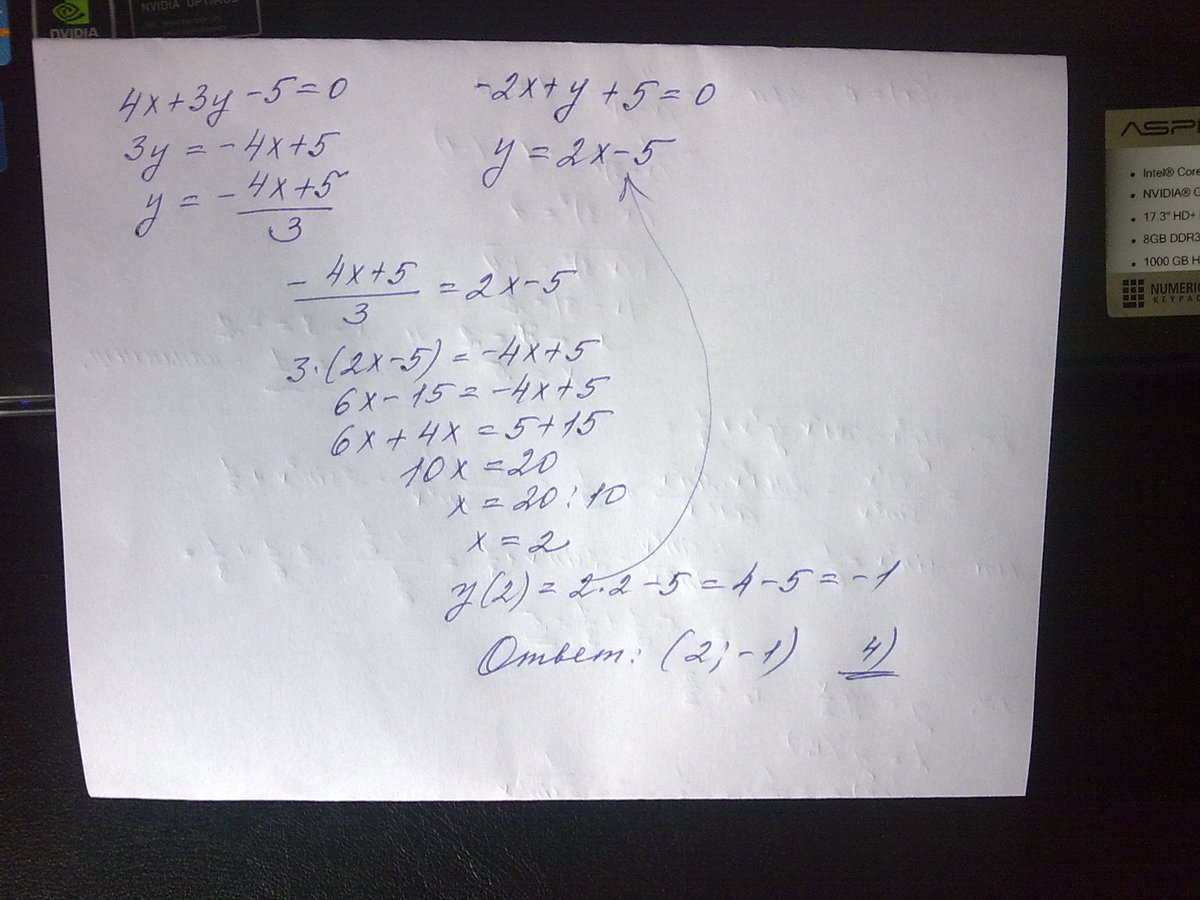 NVIDIA
NVIDIA OPTIMUS
4x+3y-5=0
3y=-4x+5
y=-4x+5/3
-2x+y+5=0
y=2x-5
-4x+5/3=2x-5
3·(2x-5)=-4x+5
6x-15=-4x+5
6x+4x=5+15
10x=20
x=20:10
x=2
y(2)=2·2-5=4-5=-1
Ответ: (2;-1) 4)
Intel® Core
NVIDIA®
17.3" HD+
8GB DDR3
1000 GB